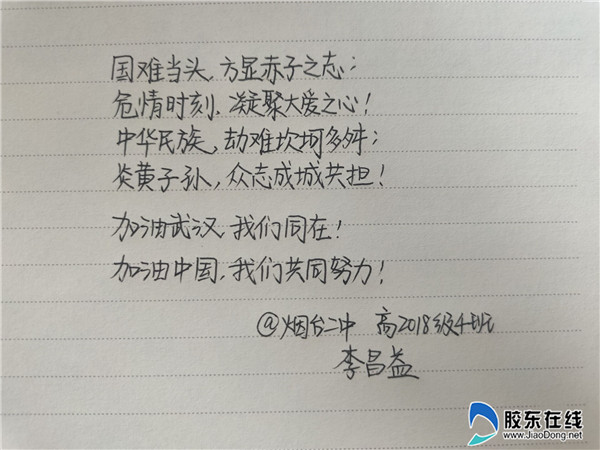 国难当头，方显赤子之志；
危情时刻，凝聚大爱之心！
中华民族，劫难坎坷多舛；
炎黄子孙，众志成城共担！
加油武汉，我们同在！
加油中国，我们共同努力！
@烟台二中 高2018级4班
李昌益
胶东在线
www.JiaoDong.net